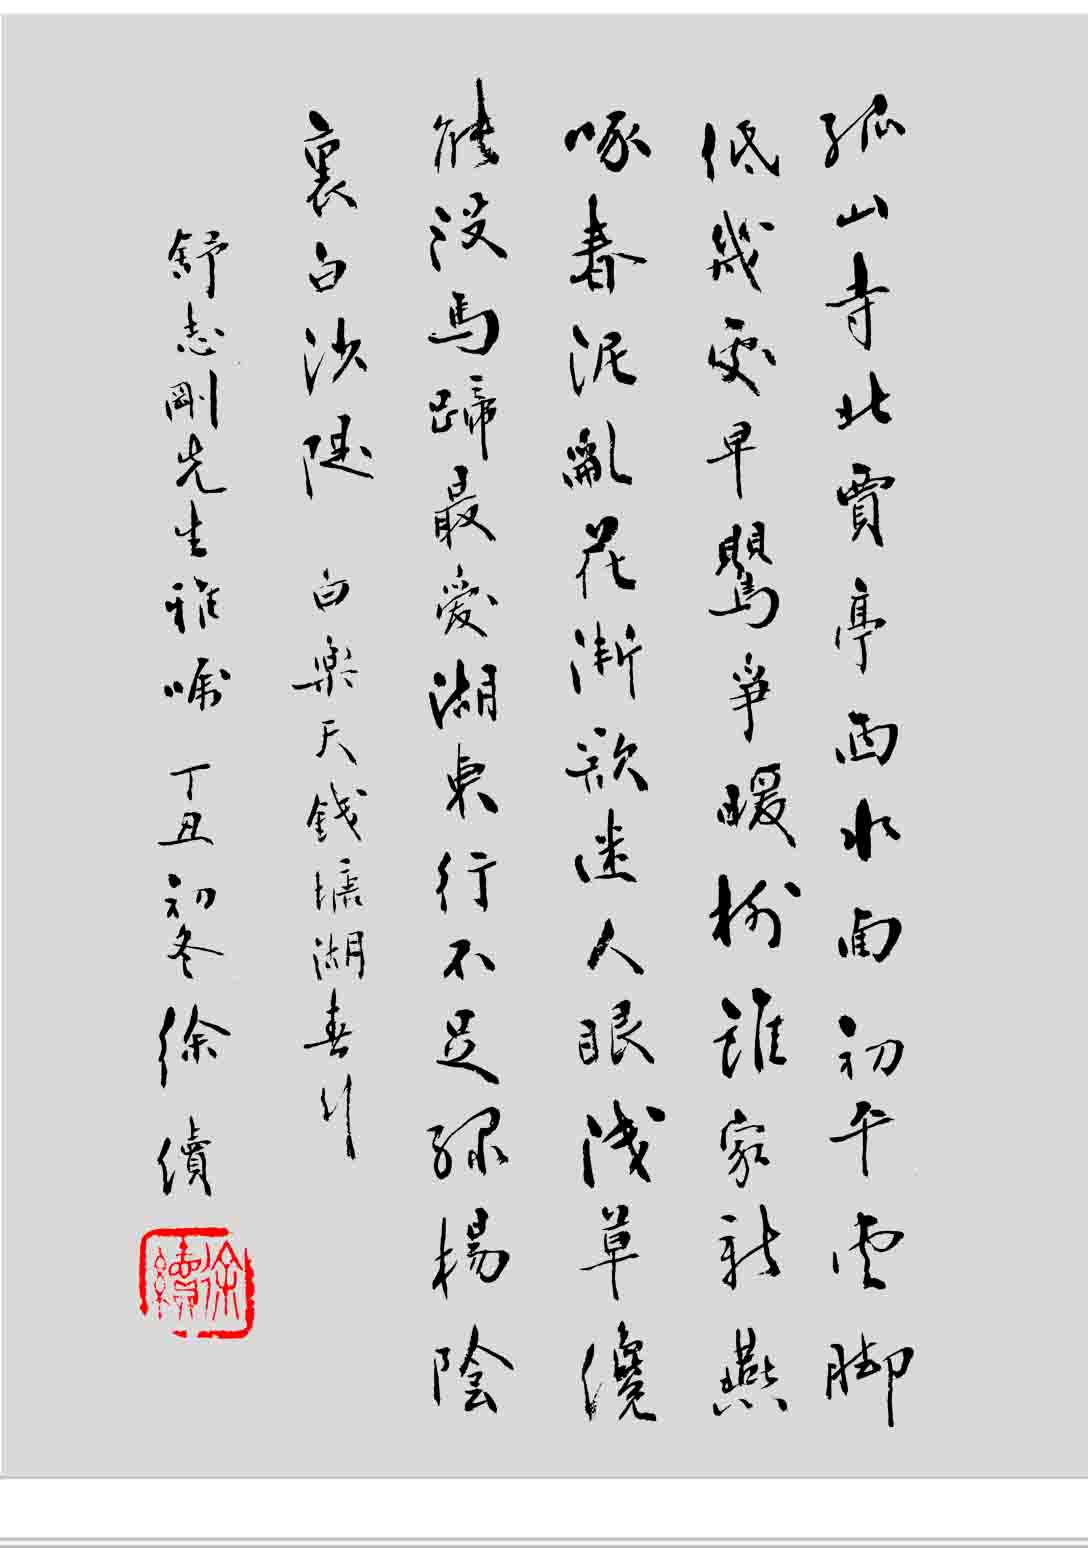 孤山寺北賈亭西水面初平雲脚
低幾處早鶯爭暖樹誰家新燕
啄春泥亂花漸欲迷人眼淺草纔
能沒馬蹄最愛湖東行不足綠楊陰
裏白沙隄 白樂天錢塘湖春行
舒志剛先生雅囑 丁丑初冬徐續
徐續